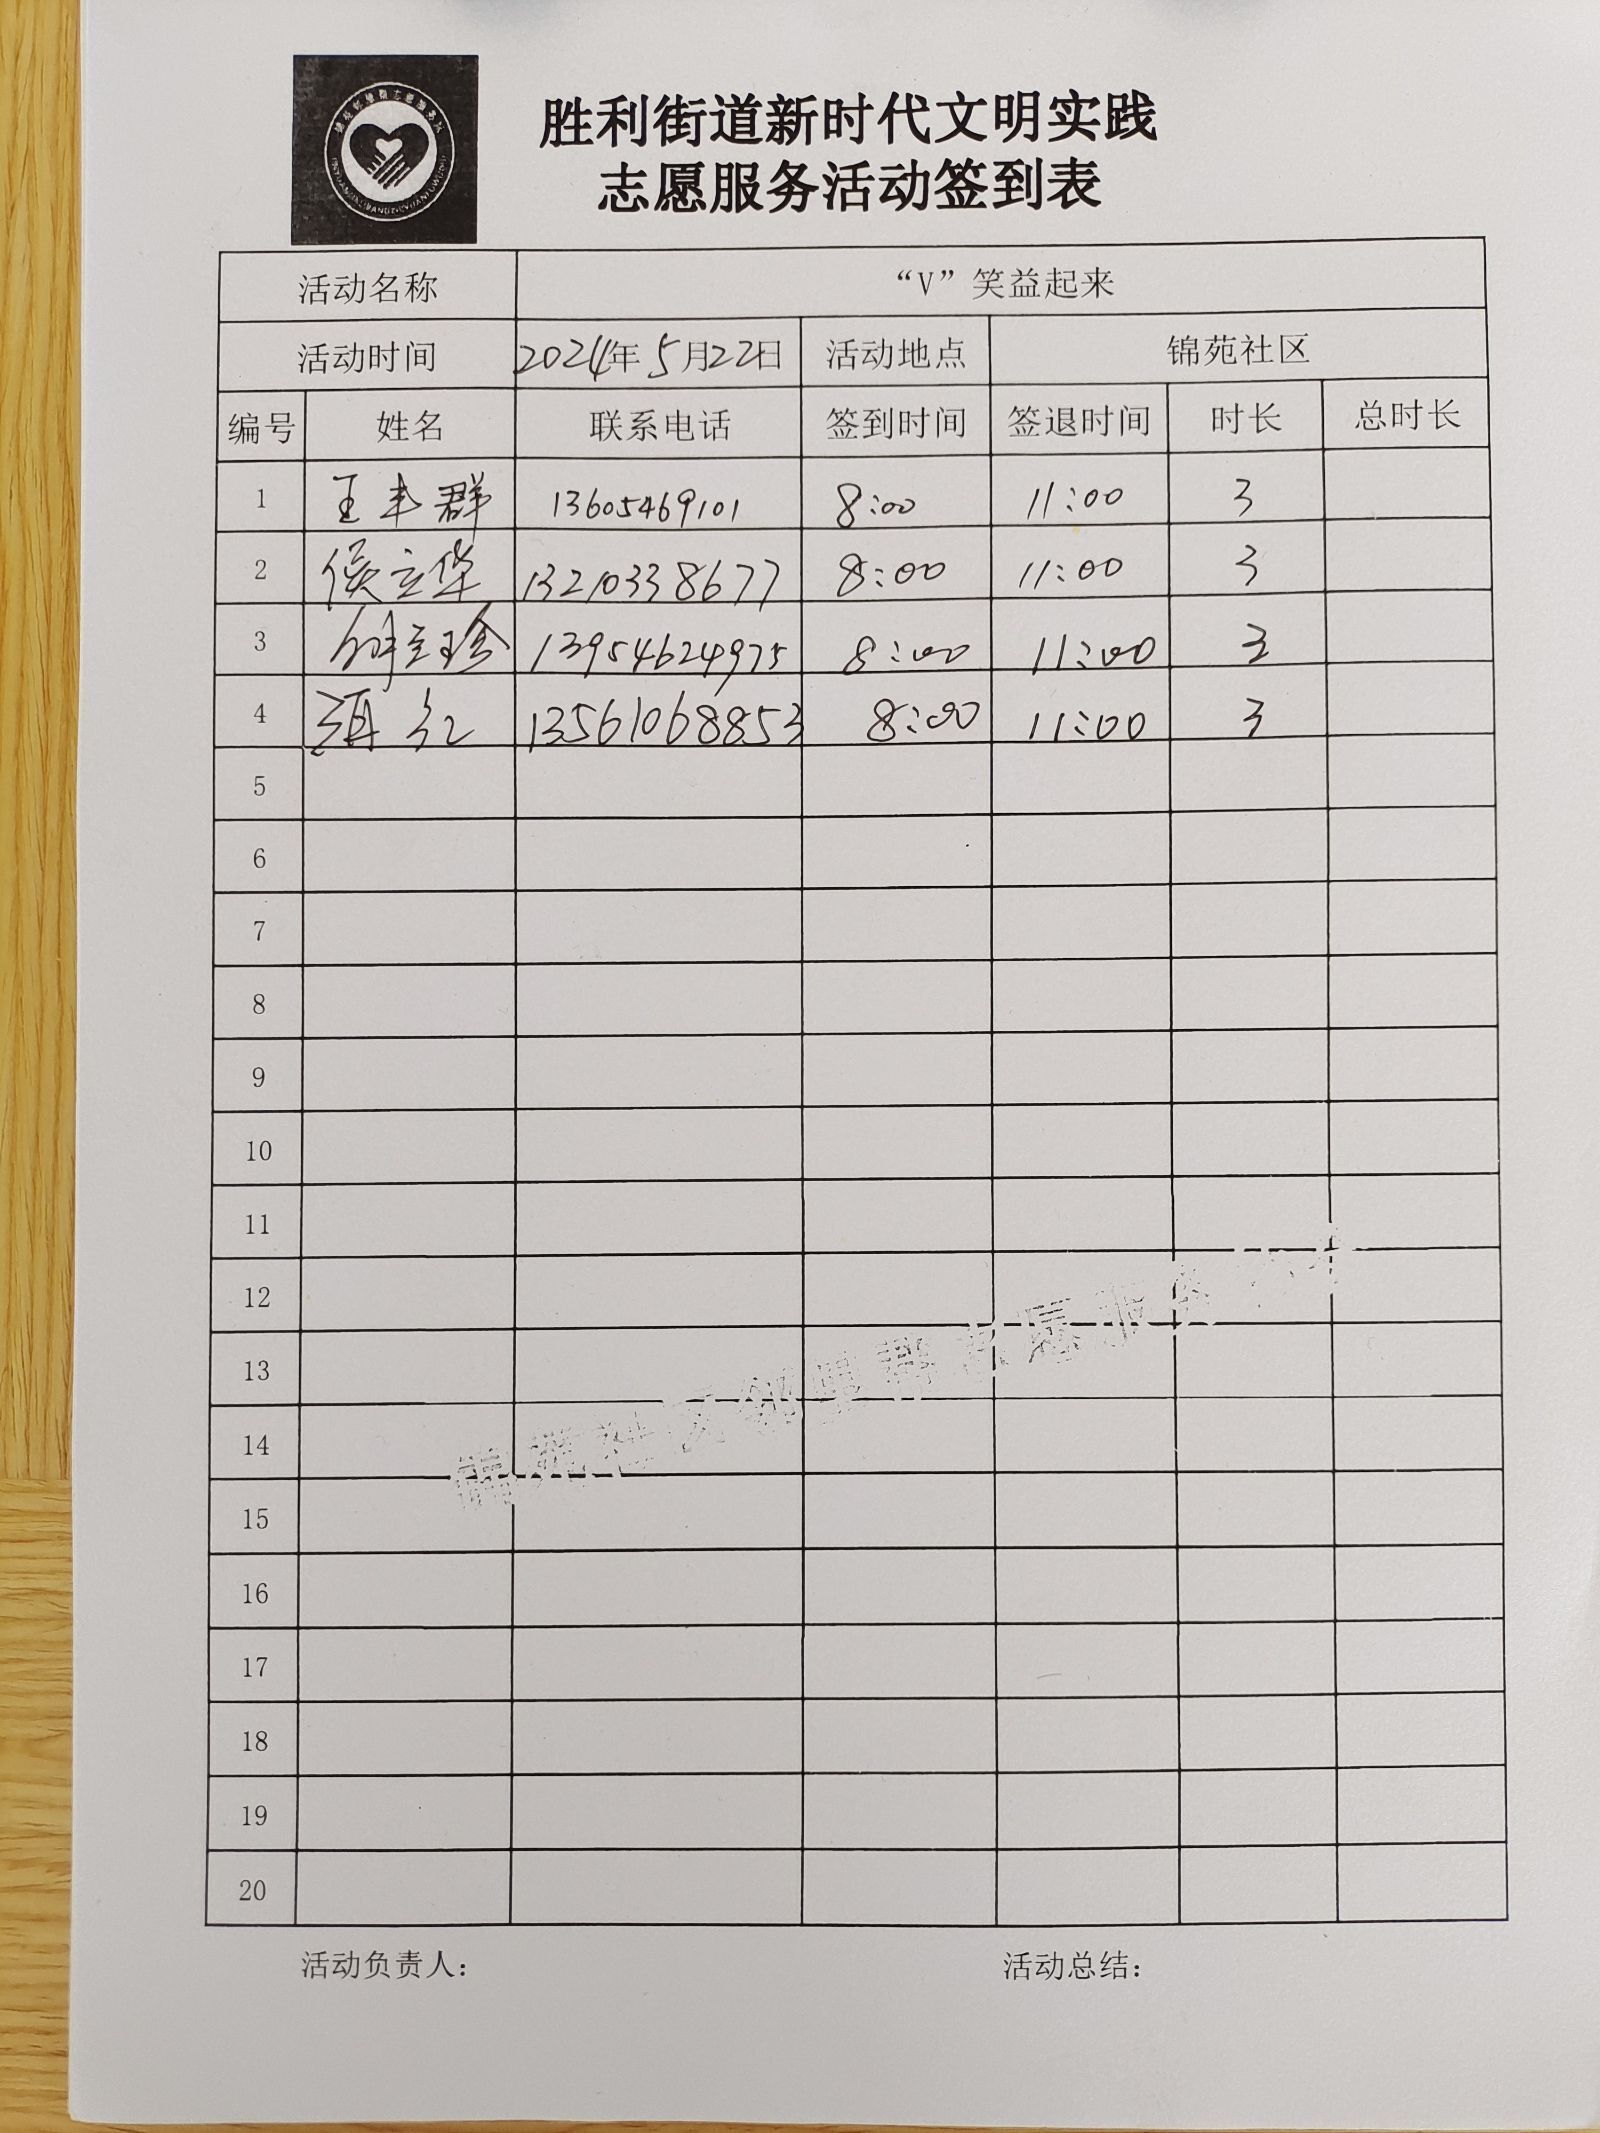 胜利街道新时代文明实践
志愿服务活动签到表
活动名称 “V”笑益起来
活动时间 2024年5月22日 活动地点 锦苑社区
编号 姓名 联系电话 签到时间 签退时间 时长 总时长
1 王丰群 13605469101 8:00 11:00 3
2 侯立华 13210338677 8:00 11:00 3
3 13954624975 8:00 11:00 3
4 红 13561068853 8:00 11:00 3
5
6
7
8
9
10
11
12
13
14
15
16
17
18
19
20
活动负责人： 活动总结：